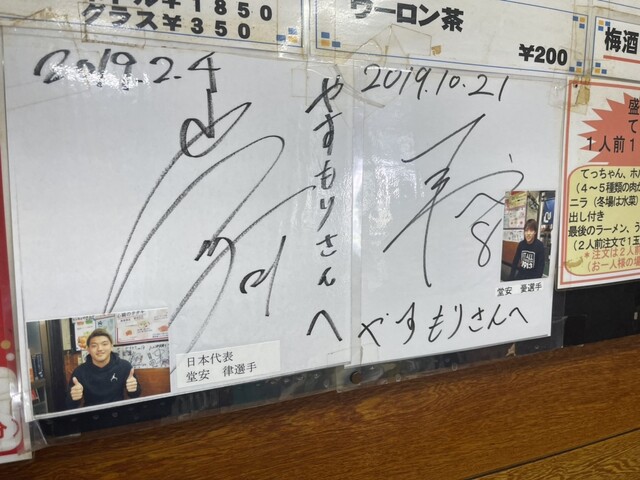 ¥1850
グラス¥350
ウーロン茶
¥200
梅酒
2019.2.4
やすもりさんへ
日本代表
堂安 律選手
2019.10.21
8
堂安 憂選手
やすもりさんへ
盛
て
1人前1
てっちゃん、ホル
(4～5種類の肉が
ニラ(冬場は水菜)
出し付き
最後のラーメン、う
(2人前注文で1玉
*注文は2人前
(お一人様の場